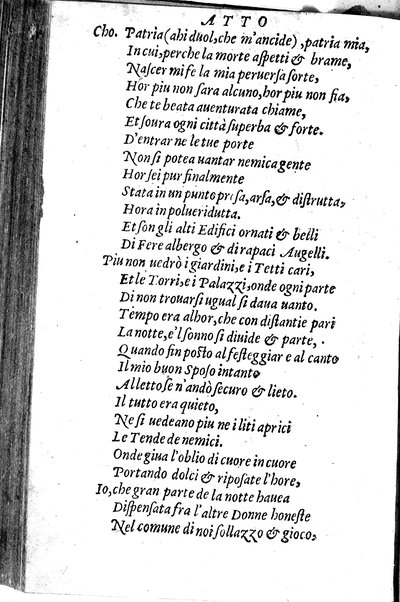 ATTO
Cho. Patria (ahi duol, che m'ancide), patria mia,
In cui, perche la morte aspetti & brame,
Nascer mi fe la mia peruersa sorte,
Hor piu non sara alcuno, hor piu non fia,
Che te beata auenturata chiame,
Et soura ogni città superba & forte.
D'entrar ne le tue porte
Non si potea uantar nemica gente
Hor sei pur finalmente
Stata in un punto presa, arsa, & distrutta,
Hora in polue ridutta.
Et son gli alti Edifici ornati & belli
Di Fere albergo & di rapaci Augelli.
Piu non uedrò i giardini, e i Tetti cari,
Et le Torri, e i Palazzi, onde ogni parte
Di non trouarsi ugual si daua uanto.
Tempo era alhor, che con distantie pari
La notte, e'l sonno si diuide & parte,
Quando fin posto al festeggiar e al canto
Il mio buon Sposo intanto
A letto se n'andò securo & lieto.
Il tutto era quieto,
Ne si uedeano piu ne i liti aprici
Le Tende de nemici.
Onde giua l'oblio di cuore in cuore
Portando dolci & riposate l'hore,
Io, che gran parte de la notte hauea
Dispensata fra l'altre Donne honeste
Nel comune di noi sollazzo & gioco,